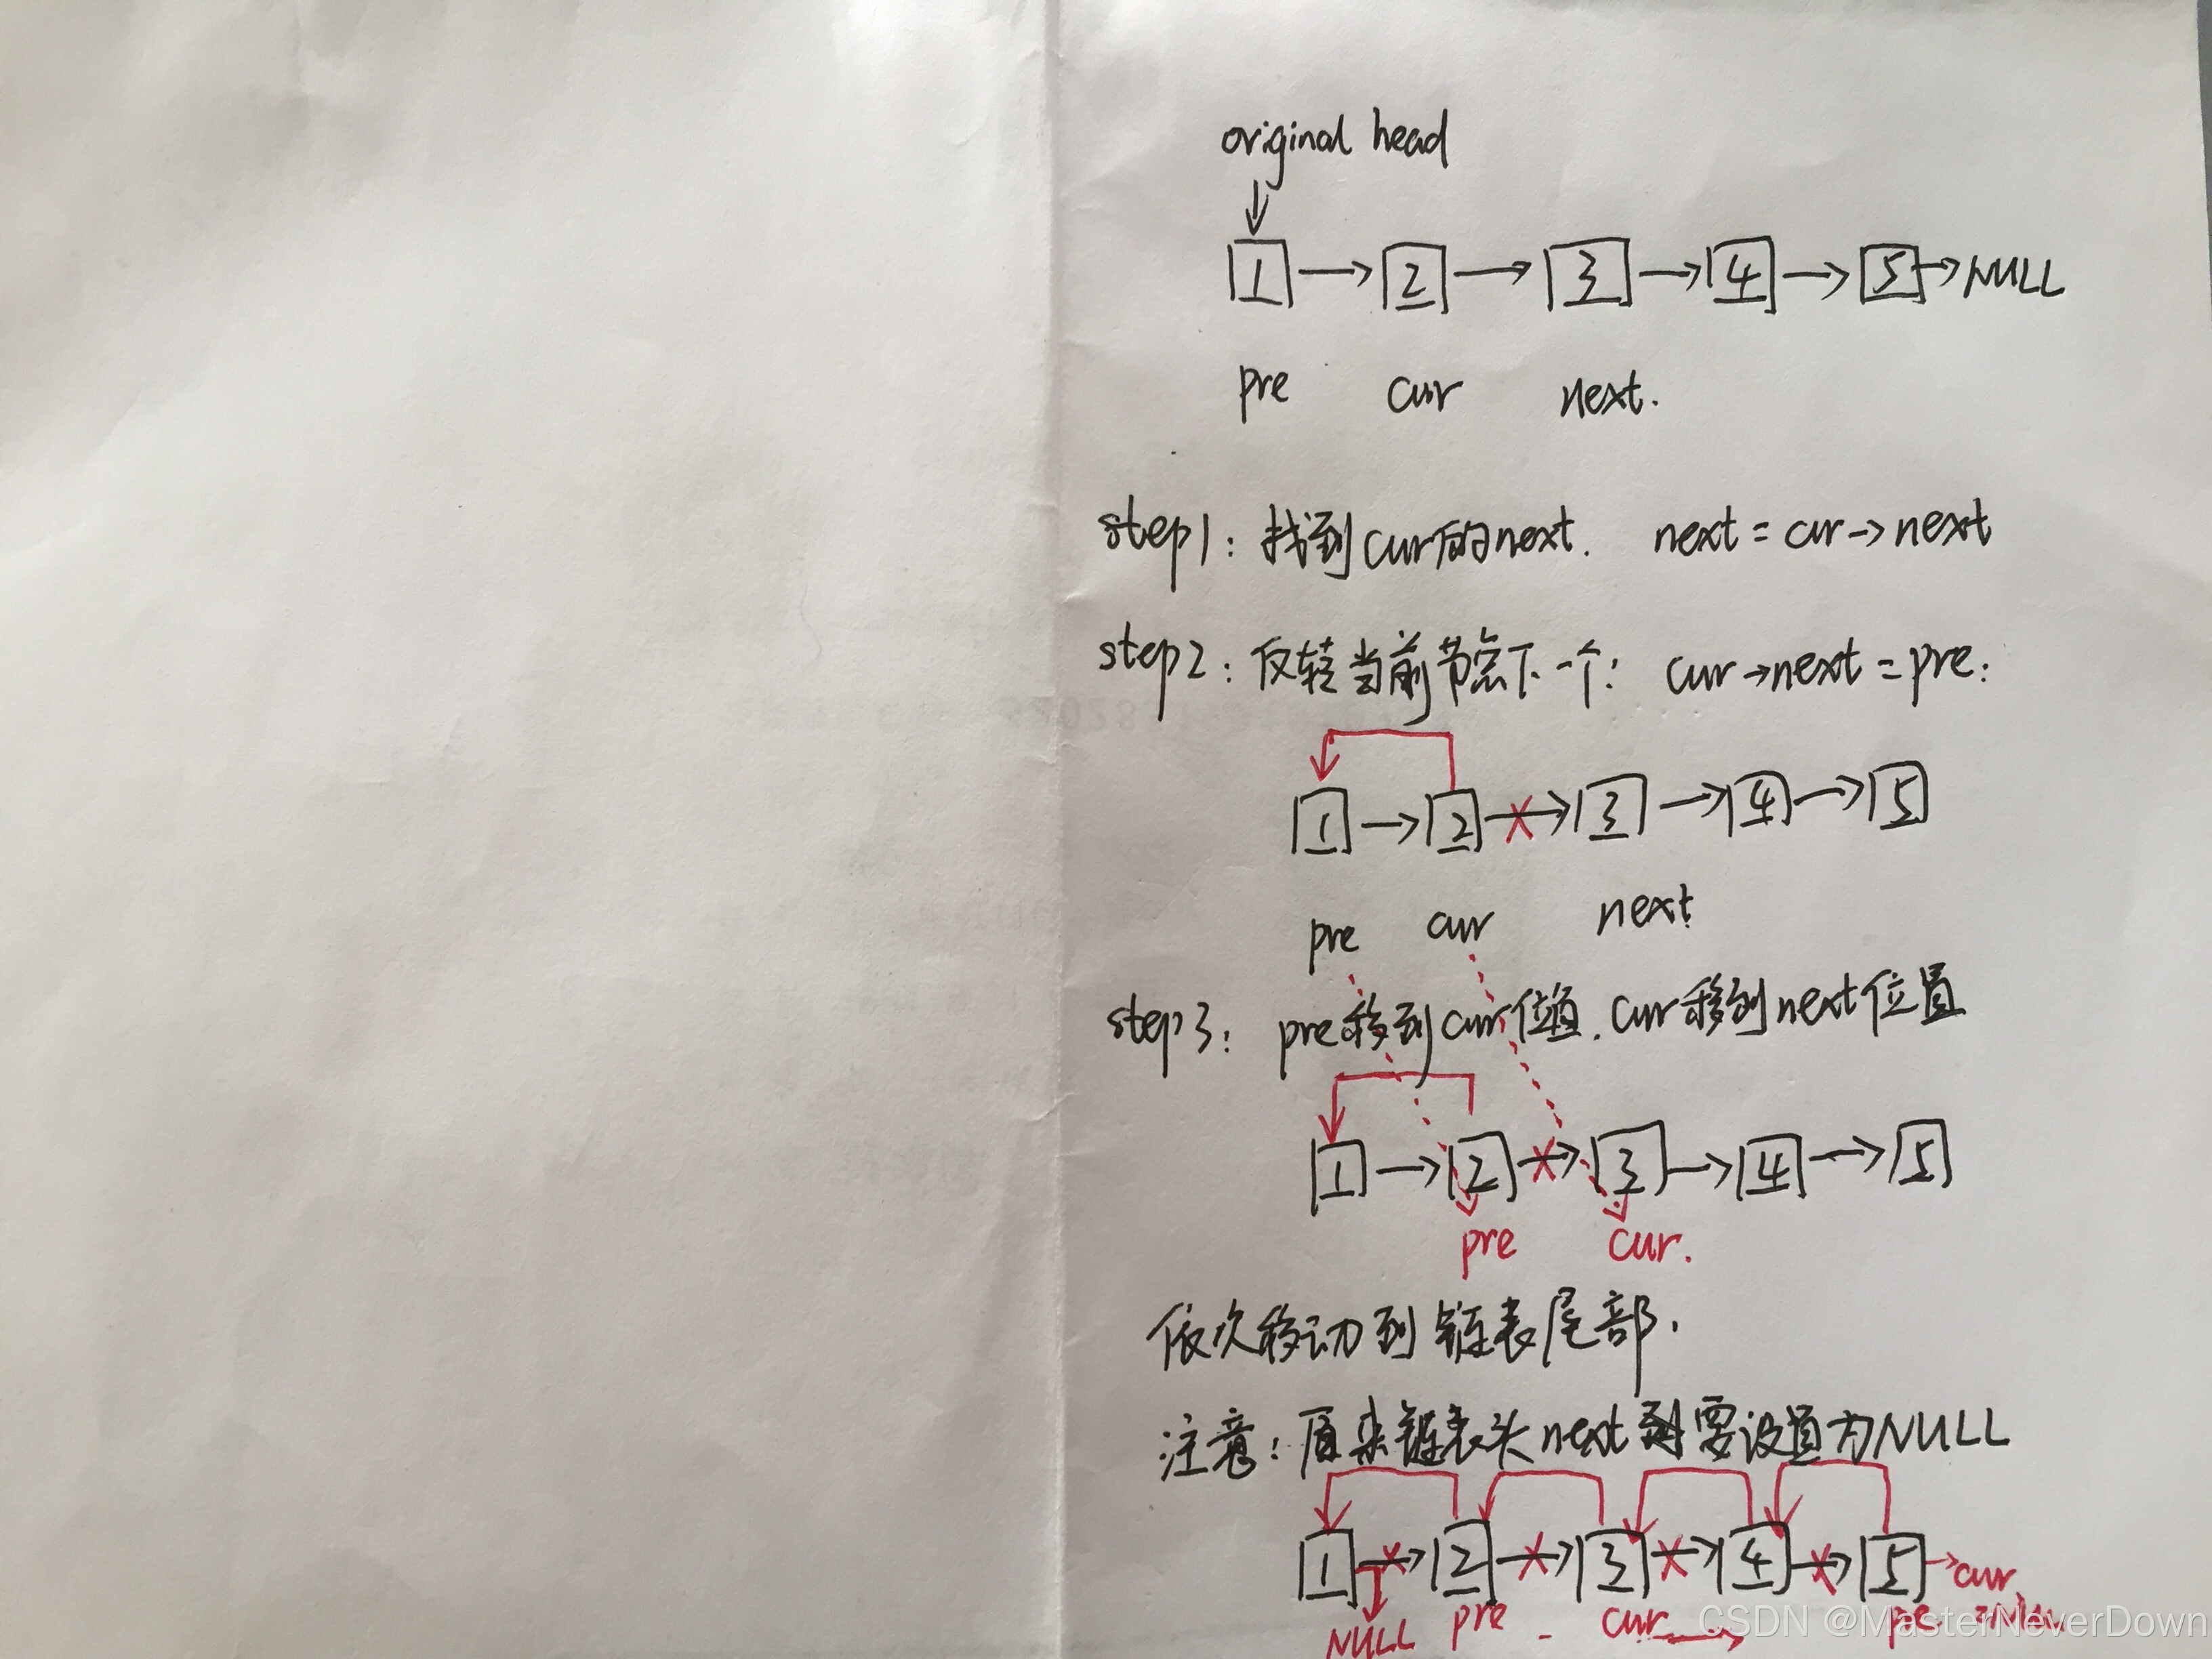 original head
1 → 2 → 3 → 4 → 5 → NULL
pre cur next.
step1: 找到cur的next. next = cur → next
step2: 反转当前节点下一个: cur → next = pre;
1 → 2 → 3 → 4 → 5
pre cur next
step3: pre移到cur位置. cur移到next位置
1 → 2 → 3 → 4 → 5
pre cur.
依次移动到链表尾部.
注意: 原来链表头next要设置为NULL
1 → 2 → 3 → 4 → 5 → cur
NULL pre cur → pre
CSDN @MasterNeverDown